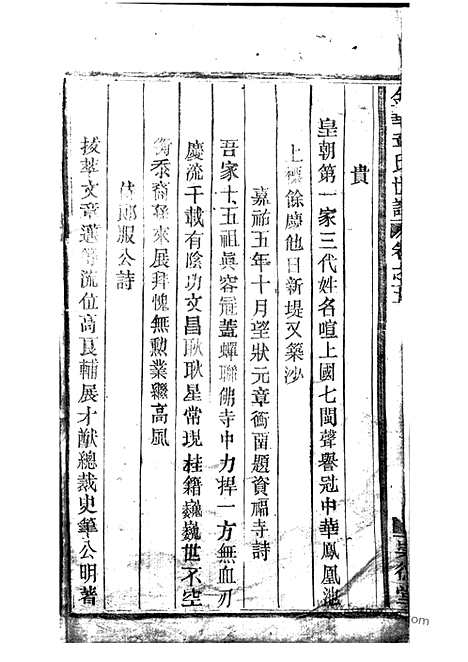 金華章氏世譜 卷之
貴
皇朝第一家三代姓名喧上國七閩聲譽冠中華鳳凰池
上 餘慶他日新堤又築沙
嘉祐五年十月望狀元章衡留題資福寺詩
吾家十五祖眞容冠蓋蟬聯佛寺中力捍一方無血刃
慶流千載有陰功文昌耿耿星常現桂籍巍巍世不空
衡忝裔孫來展拜愧無勳業繼高風
侍郎服公詩
拔萃文章邁等流位高良輔展才猷總裁史筆公明著